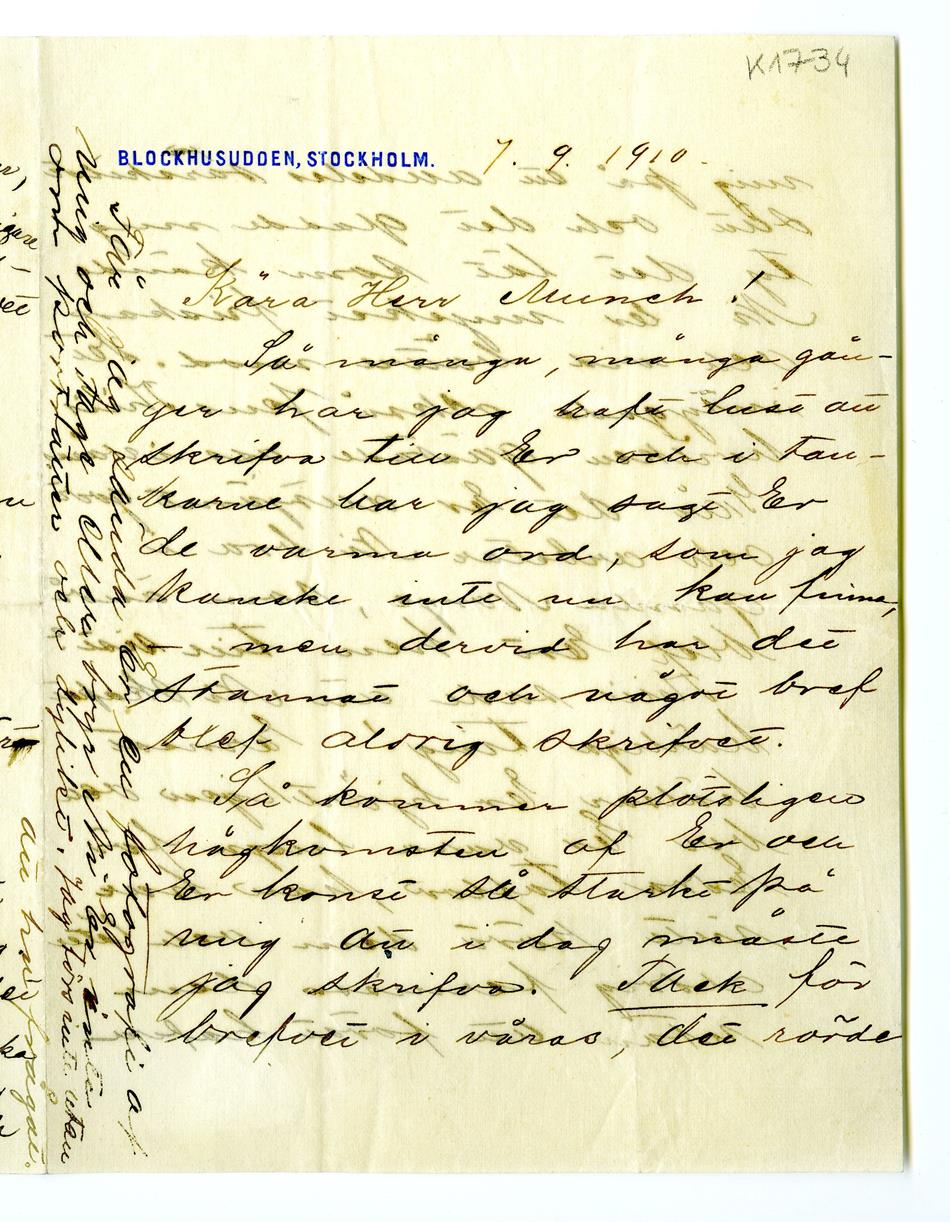 K1734
BLOCKHUSUDDEN, STOCKHOLM. 7. 9. 1910.
Kära Herr Munch!
Så många, många gån-
ger har jag haft lust att
skrifva till Er och i tan-
karne har jag sagt Er
de varma ord, som jag
kanske inte nu kan finna,
– men dervid har det
stannat och något bref
blef aldrig skrifvet.
Så kommer plötsligen
hågkomsten af Er och
Er konst så starkt på
mig att i dag måste
jag skrifva. Tack för
brefvet i våras, det rörde
Får jag sända Er en fotografi af
mig och Tage
om porträtter och dylikt. Jag törs inte utan
att ha frågat.